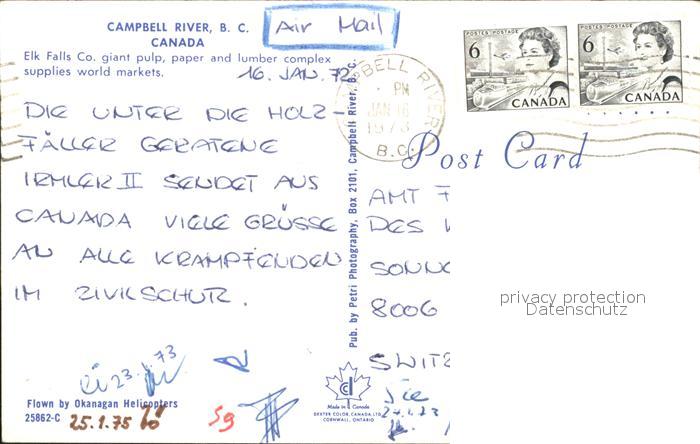 CAMPBELL RIVER, B. C.
CANADA
Elk Falls Co. giant pulp, paper and lumber complex
supplies world markets.
Air Mail
16. JAN. 72
DIE UNTER DIE HOLZ-
FÄLLER GERATENE
IRMLER II SENDET AUS
CANADA VIELE GRÜSSE
AN ALLE KRAMPFENDEN
IM ZIVILSCHUTZ.
23.1.73
Flown by Okanagan Helicopters
25862-C
25.1.75
Sg
Pub. by Petri Photography, Box 2101, Campbell River, B. C.
Made in Canada
DEXTER COLOR CANADA LTD
CORNWALL, ONTARIO
CAMPBELL RIVER
PM
JAN 16
1973
B.C.
POSTES POSTAGE
6
CANADA
POSTES POSTAGE
6
CANADA
Post Card
AMT
DES
8006
privacy protection
Datenschutz